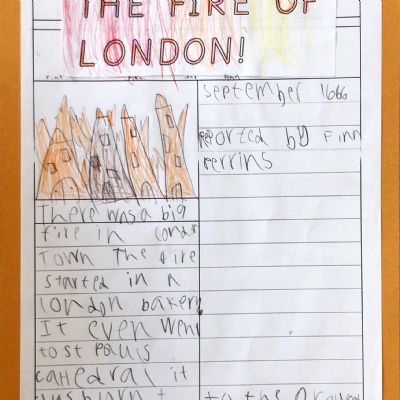 THE FIRE OF
LONDON!
September 1666
reported by Finn
Perrins
There was a big
fire in London
Town The fire
started in a
london bakery
It even went
to st pauls
cathedral it
to the ground